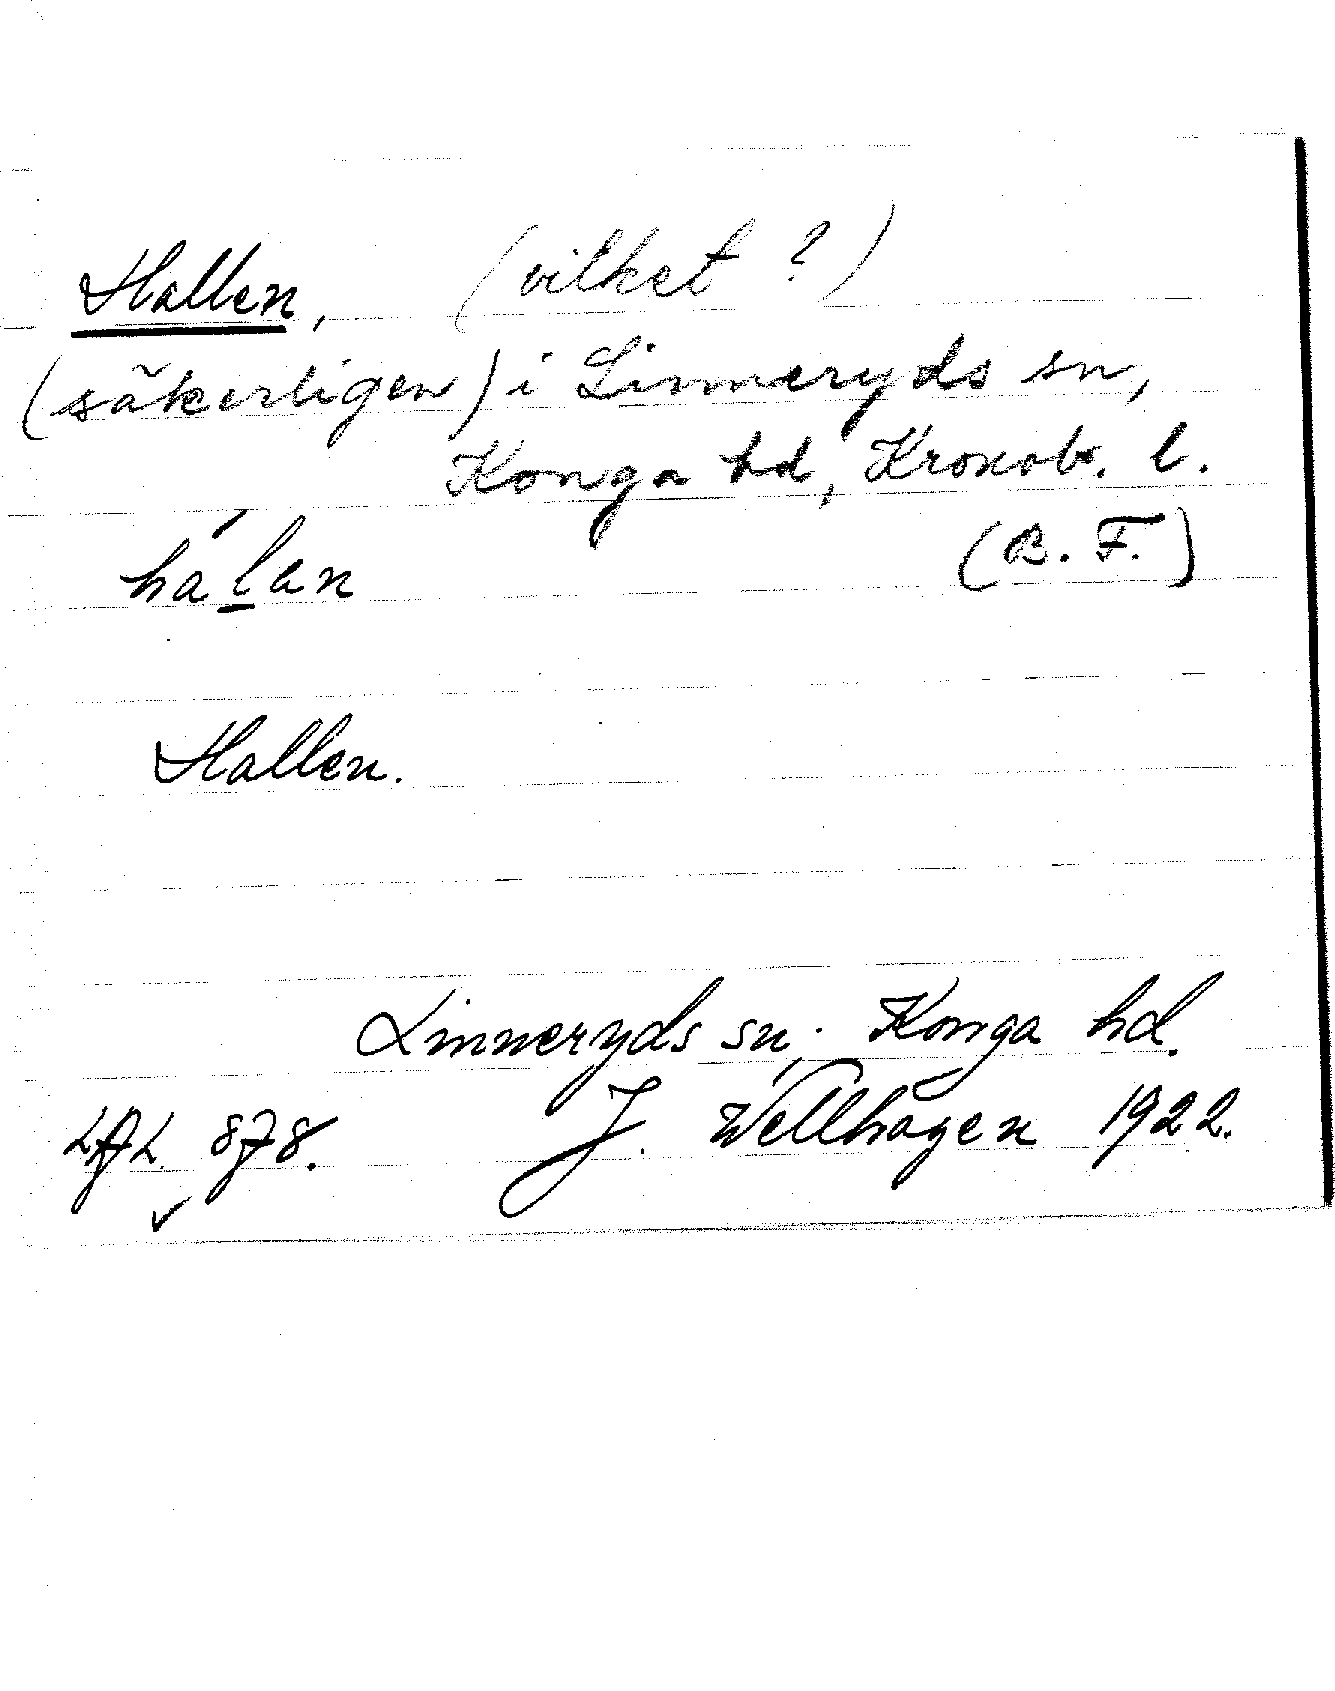 Hallen, (vilket ?)
(säkerligen) i Linneryds sn,
Konga hd, Kronob. l.
(B. F.)
hálan
Hallen.
Linneryds sn. Konga hd.
J. Wellhagen 1922.
878.